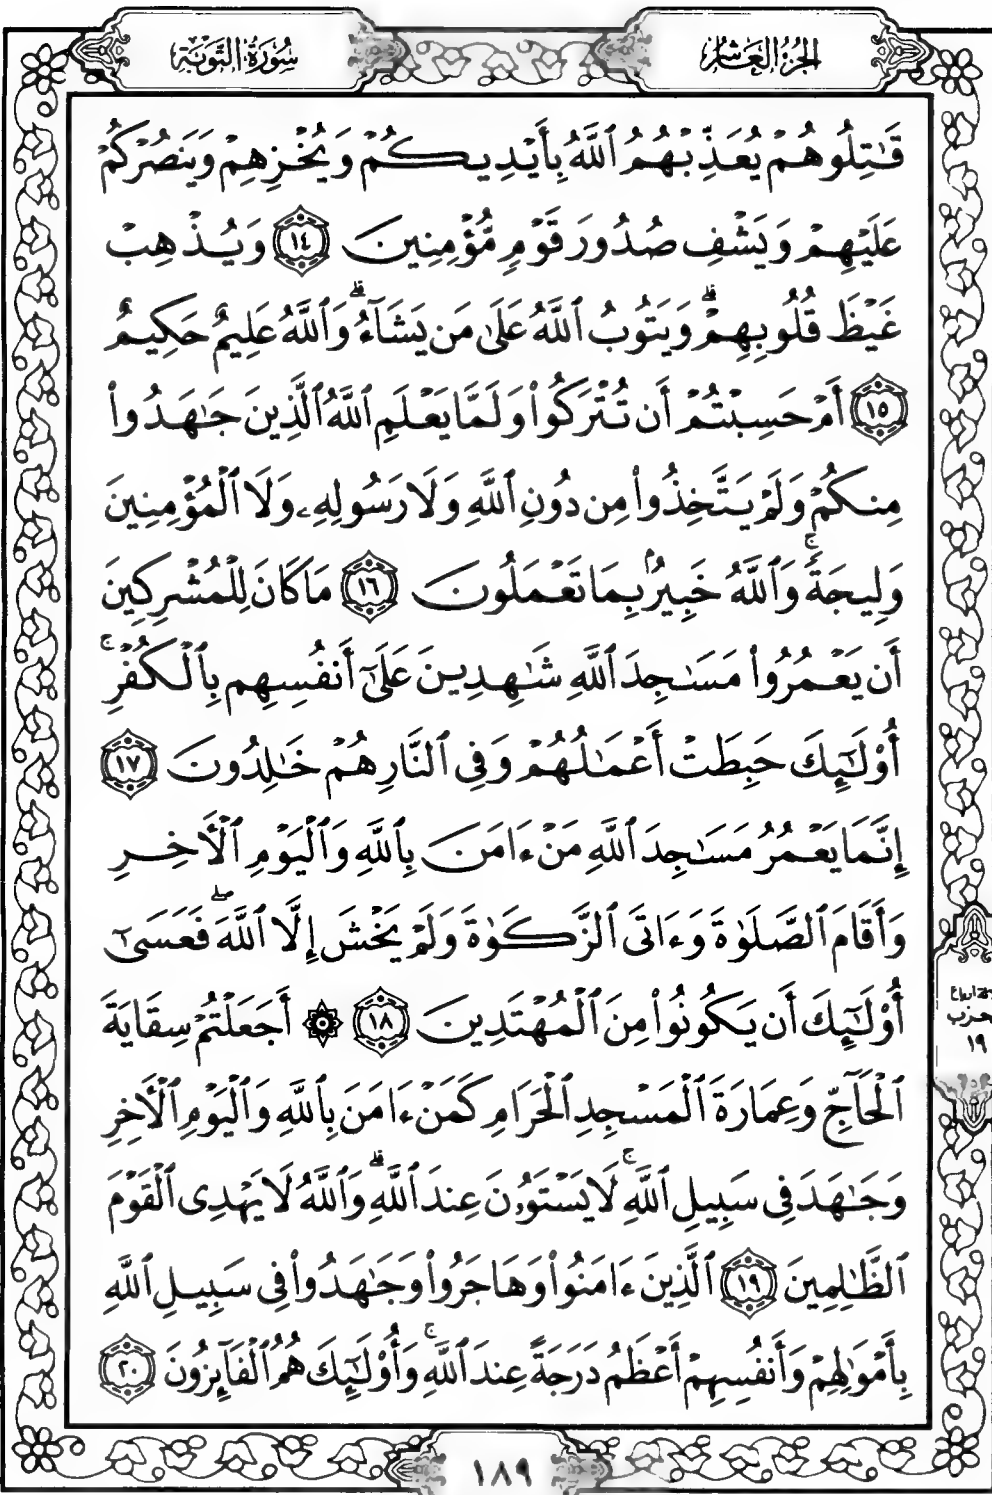 الجزء العاشر
سورة التوبة
قَٰتِلُوهُمْ يُعَذِّبْهُمُ ٱللَّهُ بِأَيْدِيكُمْ وَيُخْزِهِمْ وَيَنصُرْكُمْ
عَلَيْهِمْ وَيَشْفِ صُدُورَ قَوْمٍ مُّؤْمِنِينَ ١٤ وَيُذْهِبْ
غَيْظَ قُلُوبِهِمْ ۗ وَيَتُوبُ ٱللَّهُ عَلَىٰ مَن يَشَآءُ ۗ وَٱللَّهُ عَلِيمٌ حَكِيمٌ
١٥ أَمْ حَسِبْتُمْ أَن تُتْرَكُوا۟ وَلَمَّا يَعْلَمِ ٱللَّهُ ٱلَّذِينَ جَٰهَدُوا۟
مِنكُمْ وَلَمْ يَتَّخِذُوا۟ مِن دُونِ ٱللَّهِ وَلَا رَسُولِهِۦ وَلَا ٱلْمُؤْمِنِينَ
وَلِيجَةً ۚ وَٱللَّهُ خَبِيرٌۢ بِمَا تَعْمَلُونَ ١٦ مَا كَانَ لِلْمُشْرِكِينَ
أَن يَعْمُرُوا۟ مَسَٰجِدَ ٱللَّهِ شَٰهِدِينَ عَلَىٰٓ أَنفُسِهِم بِٱلْكُفْرِ ۚ
أُو۟لَٰٓئِكَ حَبِطَتْ أَعْمَٰلُهُمْ وَفِى ٱلنَّارِ هُمْ خَٰلِدُونَ ١٧
إِنَّمَا يَعْمُرُ مَسَٰجِدَ ٱللَّهِ مَنْ ءَامَنَ بِٱللَّهِ وَٱلْيَوْمِ ٱلْأَخِرِ
وَأَقَامَ ٱلصَّلَوٰةَ وَءَاتَى ٱلزَّكَوٰةَ وَلَمْ يَخْشَ إِلَّا ٱللَّهَ ۖ فَعَسَىٰٓ
أُو۟لَٰٓئِكَ أَن يَكُونُوا۟ مِنَ ٱلْمُهْتَدِينَ ١٨ ۞ أَجَعَلْتُمْ سِقَايَةَ
ٱلْحَآجِّ وَعِمَارَةَ ٱلْمَسْجِدِ ٱلْحَرَامِ كَمَنْ ءَامَنَ بِٱللَّهِ وَٱلْيَوْمِ ٱلْأَخِرِ
وَجَٰهَدَ فِى سَبِيلِ ٱللَّهِ ۚ لَا يَسْتَوُۥنَ عِندَ ٱللَّهِ ۗ وَٱللَّهُ لَا يَهْدِى ٱلْقَوْمَ
ٱلظَّٰلِمِينَ ١٩ ٱلَّذِينَ ءَامَنُوا۟ وَهَاجَرُوا۟ وَجَٰهَدُوا۟ فِى سَبِيلِ ٱللَّهِ
بِأَمْوَٰلِهِمْ وَأَنفُسِهِمْ أَعْظَمُ دَرَجَةً عِندَ ٱللَّهِ ۚ وَأُو۟لَٰٓئِكَ هُمُ ٱلْفَآئِزُونَ ٢٠
حزب
١٩
١٨٩